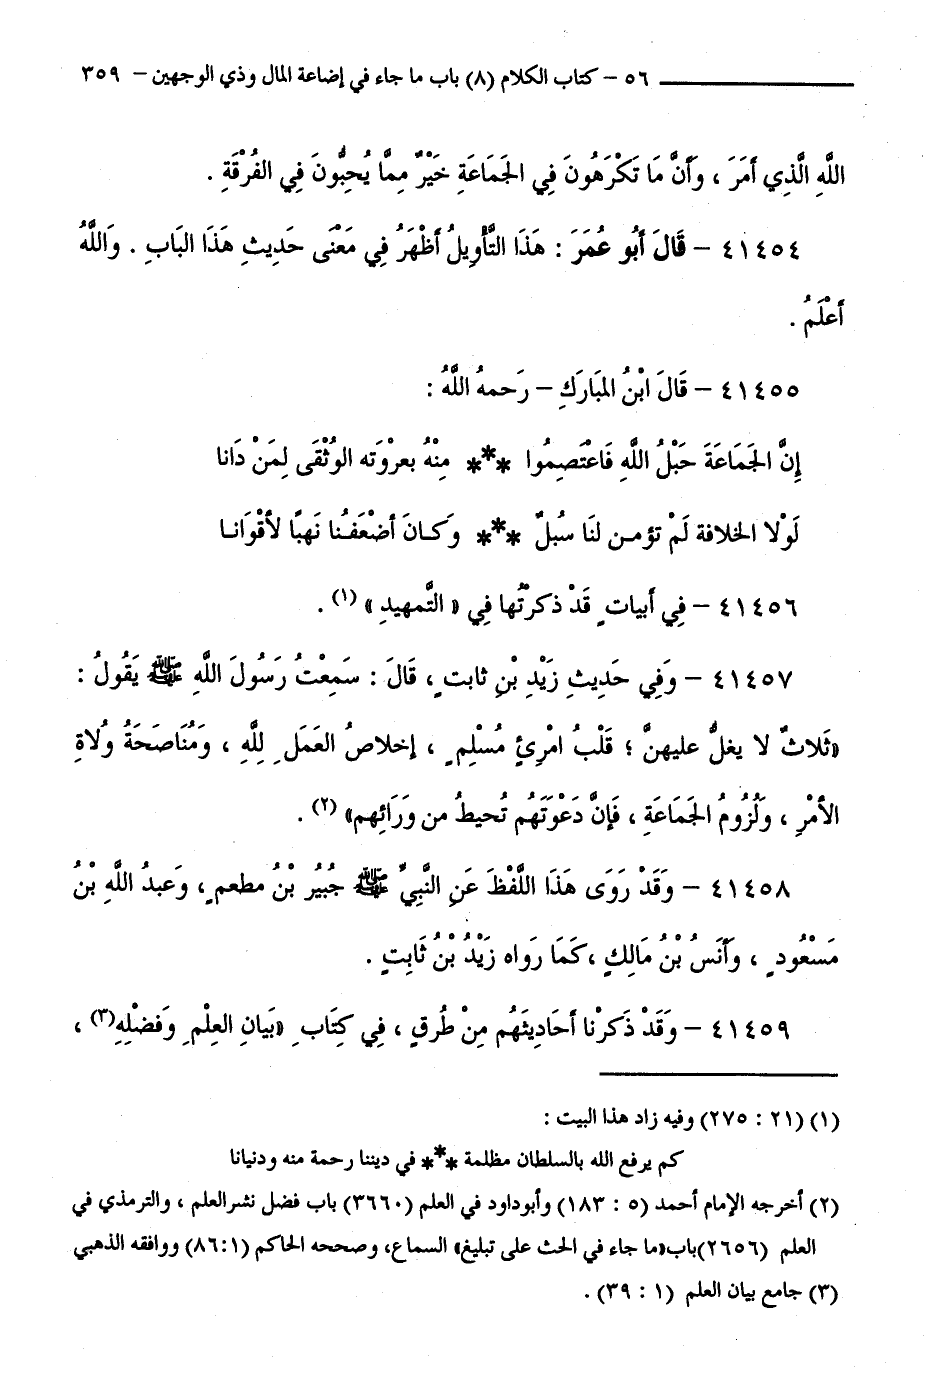 ٥٦ – كتاب الكلام (٨) باب ما جاء في إضاعة المال وذي الوجهين – ٣٥٩
اللَّهِ الَّذِي أَمَرَ ، وَأَنَّ مَا تَكْرَهُونَ فِي الجَمَاعَةِ خَيْرٌ مِمَّا يُحِبُّونَ فِي الفُرْقَةِ .
٤١٤٥٤ – قَالَ أَبُو عُمَرَ : هَذَا التَّأْوِيلُ أَظْهَرُ فِي مَعْنَى حَدِيثِ هَذَا البَابِ . وَاللَّهُ
أَعْلَمُ .
٤١٤٥٥ – قَالَ ابْنُ المُبَارَكِ – رَحمهُ اللَّهُ :
إِنَّ الجَمَاعَةَ حَبْلُ اللَّهِ فَاعْتَصِمُوا *** مِنْهُ بعرْوَته الوُثْقَى لِمَنْ دَانا
لَوْلا الخلافة لَمْ تؤمـن لنَا سُبلٌ *** وَكـانَ أضْعَفُـنُا نَهبًا لأقْوَانـا
٤١٤٥٦ – فِي أبيات ٍ قَدْ ذكرتُها فِي « التَّمهيدِ » (١) .
٤١٤٥٧ – وَفِي حَدِيثِ زَيْدِ بْنِ ثابت ٍ ، قَالَ : سَمِعْتُ رَسُولَ اللَّهِ ﷺ يَقُولُ :
«ثَلاثٌ لا يغلُّ عليهنَّ ؛ قَلْبُ امْرِئٍ مُسْلِم ٍ ، إخلاصُ العَمَل ِ لِلَّهِ ، وَمُنَاصَحَةُ وُلاةِ
الأَمْرِ ، وَلُزُومُ الجَمَاعَةِ ، فَإنَّ دَعْوَتَهُم تُحيطُ من وَرَائِهم» (٢) .
٤١٤٥٨ – وَقَدْ رَوَى هَذَا اللَّفْظَ عَنِ النَّبِيِّ ﷺ جُبَيْر بْنُ مطعم ٍ ، وَعبدُ اللَّهِ بْنُ
مَسْعُود ٍ ، وَأنَسُ بْنُ مَالِكٍ ،كَمَا رَواه زَيْدُ بْنُ ثَابِتٍ .
٤١٤٥٩ – وَقَدْ ذَكَرْنا أحَادِيثَهُم مِنْ طُرقٍ ، فِي كِتَاب ِ «بَيانِ العِلْم ِ وَفضْلِهِ(٣) ،
(١) (٢١ : ٢٧٥) وفيه زاد هذا البيت :
كم يرفع الله بالسلطان مظلمة *** في ديننا رحمة منه ودنيانا
(٢) أخرجه الإمام أحمد (٥ : ١٨٣) وأبوداود في العلم (٣٦٦٠) باب فضل نشرالعلم ، والترمذي في
العلم (٢٦٥٦)باب«ما جاء في الحث على تبليغ» السماع، وصححه الحاكم (٨٦:١) ووافقه الذهبي
(٣) جامع بيان العلم (١ : ٣٩) .